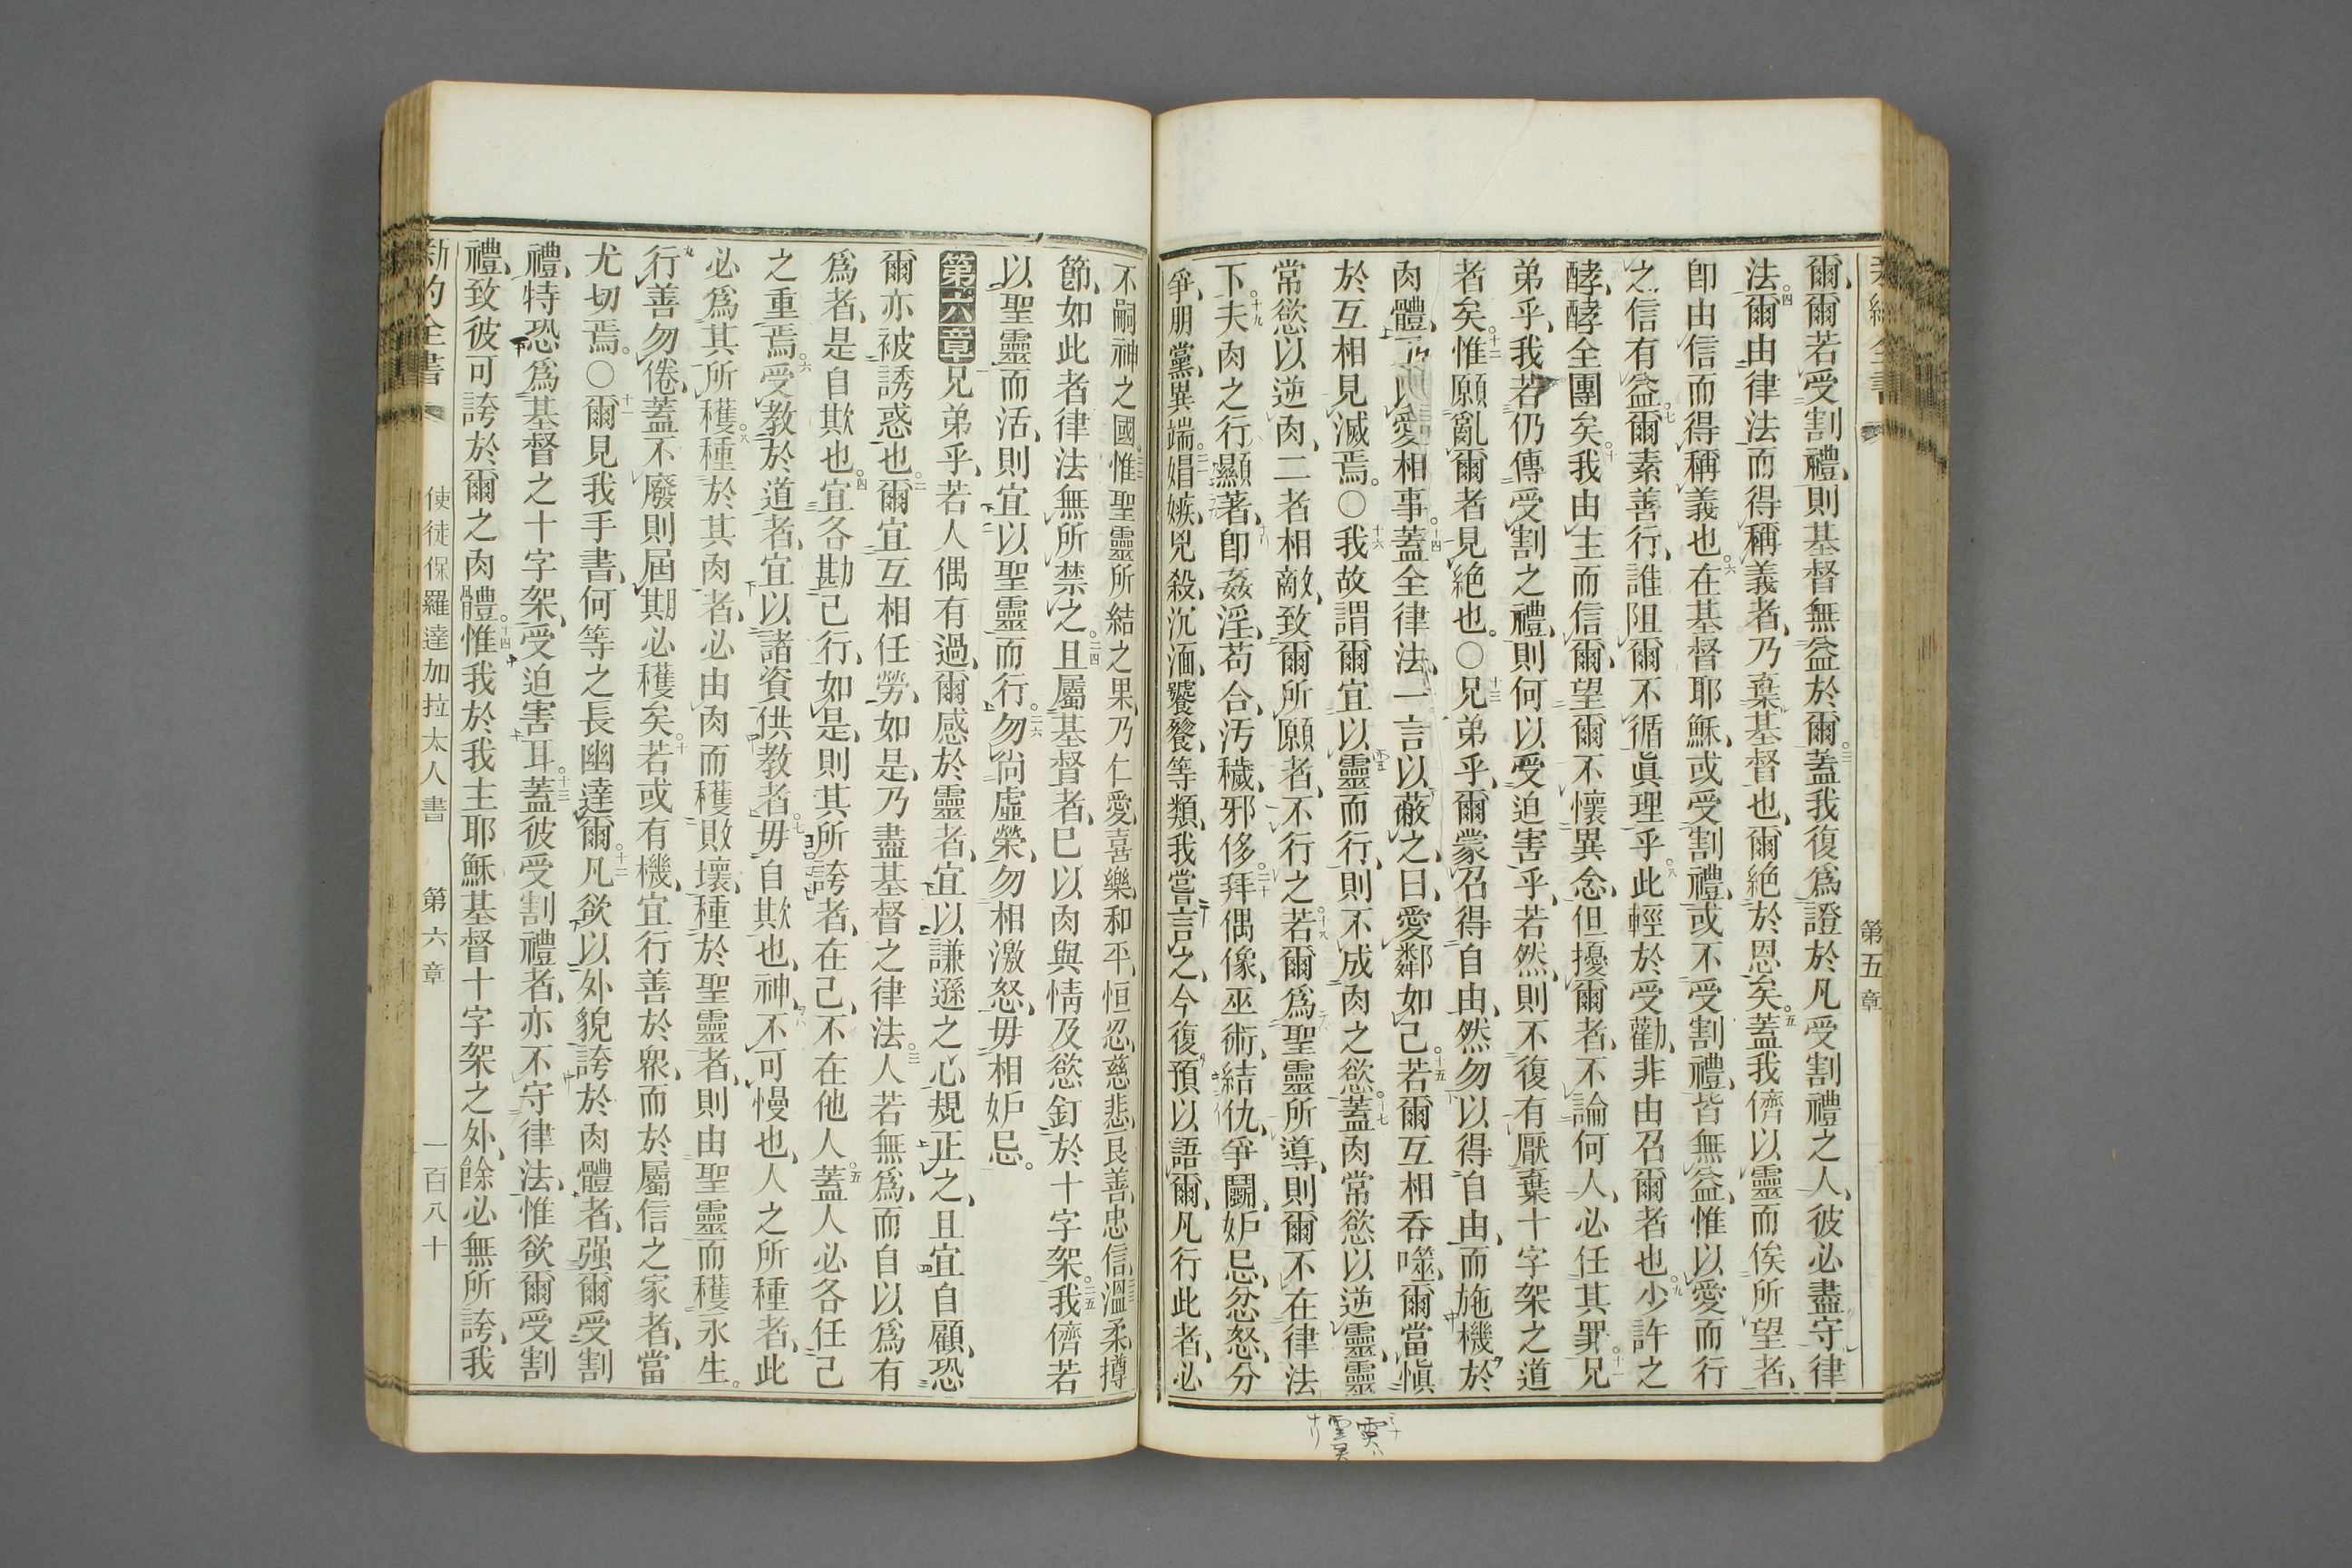 第五章
爾、爾若受割禮、則基督無益於爾。三蓋我復爲證於凡受割禮之人、彼必盡守律
法。四爾由律法而得稱義者、乃棄基督也、爾絕於恩矣。五蓋我儕以靈而俟所望者、
卽由信而得稱義也。六在基督耶穌、或受割禮、或不受割禮、皆無益、惟以愛而行
之信有益。七爾素善行、誰阻爾不循眞理乎。八此輕於受勸、非由召爾者也。九少許之
酵、酵全團矣。十我由主而信爾、望爾不懷異念、但擾爾者、不論何人、必任其罪。十一兄
弟乎、我若仍傳受割之禮、則何以受迫害乎、若然、則不復有厭棄十字架之道
者矣。十二惟願亂爾者見絕也。〇十三兄弟乎、爾蒙召得自由、然勿以得自由、而施機於
肉體、乃以愛相事。十四蓋全律法、一言以蔽之、曰、愛鄰如己。十五若爾互相吞噬、爾當愼
於互相見滅焉。〇十六我故謂爾宜以靈而行、則不成肉之慾。十七蓋肉常慾以逆靈、靈
常慾以逆肉、二者相敵、致爾所願者、不行之。十八若爾爲聖靈所導、則爾不在律法
下。十九夫肉之行顯著、卽姦淫、苟合、汚穢、邪侈。二十拜偶像、巫術、結仇、爭鬬、妒忌、忿怒、分
爭、朋黨、異端。二一娼嫉、兇殺、沉湎、饕餮、等類、我嘗言之、今復預以語爾、凡行此者、必
不嗣神之國。二二惟聖靈所結之果、乃仁愛、喜樂、和平、恒忍、慈悲、良善、忠信、二三溫柔、撙
節、如此者、律法無所禁之。二四且屬基督者、已以肉與情及慾、釘於十字架。二五我儕若
以聖靈而活、則宜以聖靈而行。二六勿尙虛榮、勿相激怒、毋相妒忌。
第六章 一兄弟乎、若人偶有過、爾感於靈者、宜以謙遜之心規正之、且宜自顧、恐
爾亦被誘惑也。二爾宜互相任勞、如是、乃盡基督之律法。三人若無爲、而自以爲有
爲者、是自欺也。四宜各勘己行、如是、則其所誇者、在己、不在他人。五蓋人必各任己
之重焉。六受教於道者、宜以諸資供教者。七毋自欺也、神不可慢也、人之所種者、此
必爲其所穫。八種於其肉者、必由肉而穫敗壞、種於聖靈者、則由聖靈而穫永生。
九行善勿倦、蓋不廢則屆期必穫矣。十若或有機、宜行善於衆、而於屬信之家者、當
尤切焉。〇十一爾見我手書、何等之長幽達爾。十二凡欲以外貌誇於肉體者、强爾受割
禮、特恐爲基督之十字架、受迫害耳。十三蓋彼受割禮者、亦不守律法、惟欲爾受割
禮、致彼可誇於爾之肉體。十四惟我於我主耶穌基督十字架之外、餘必無所誇、我
新約全書 使徒保羅達加拉太人書 第六章 一百八十